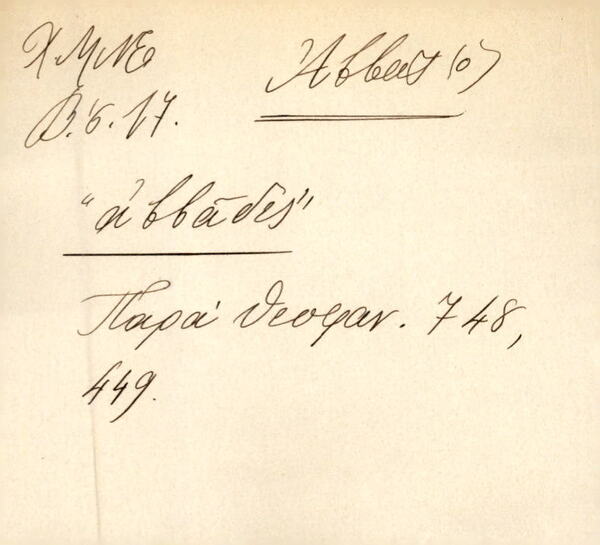 ΧΜΝΕ
Β.6.17.
Ἀββᾶς (ὁ)
"ἀββάδες"
Παρὰ Θεοφαν. 748,
449.